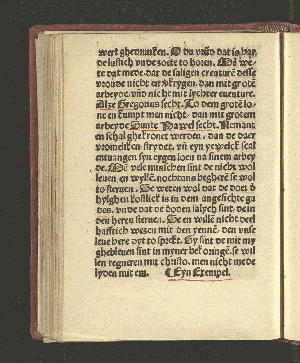 wert ghedrunken. O du vrüd dat is har
de lustich vnde soete to horen. Me we-
te dat mede. dat de saligen creaturē desse
vroude nicht en krygen. dan mit grote
arbeyde. vñ nicht mit lychter euenture.
Alze Gregorius secht. To dem grote lo-
ne en kumpt men nicht. dan mit grotem
arbeyde Sunte Pawel secht. Nemant
en schal ghekronet werden. dan de daer
vromelikē strydet. vñ eyn yewelck scal
entfangen syn eygen loen na sinem arbey
de. Mē vele minschen sint de nicht wol
leuen en wyllē. nochtans begherē se wol
to steruen. Se weten wal dat de doet d
hylghen kostlick is in dem angesichte ga
des. vnde dat de doden salych sint. de in
den heren steruen. Se en willē nicht deel
hafftich wezen mit den yennē. den vnse
leue here dyt to spreckt. Gy sint de mit my
ghebleuen sint in myner bekoringe. se wil
len regneren mit christo. men nicht mede
lyden mit em. Eyn Exempel.